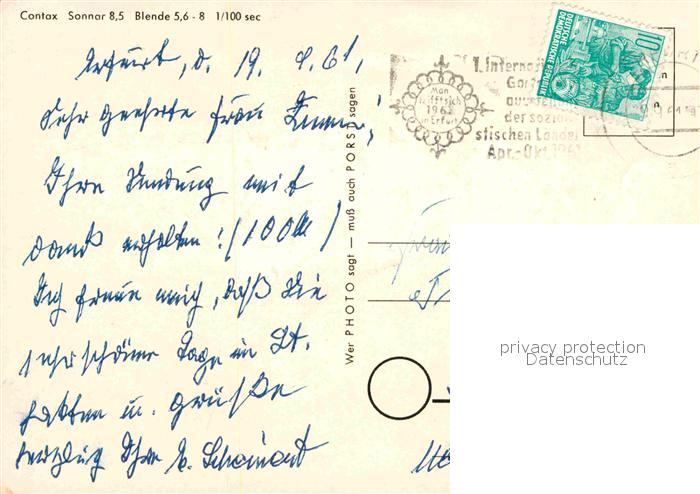 Contax Sonnar 8,5 Blende 5,6 - 8 1/100 sec
Erfurt, d. 19. 9. 61,
Sehr geehrte Frau
Ihre Sendung mit
Dank erhalten! (100 M)
Ich freue mich, daß Sie
sehr schöne Tage in St.
hatten u. Grüße
herzlich Ihre
Wer PHOTO sagt — muß auch PORST sagen
Man
trifft sich
1961
in Erfurt
1. Internat
Gart
ausstel
der sozia
stischen Länder
Apr.-Okt. 1961
DEUTSCHE
DEMOKRATISCHE REPUBLIK
10
privacy protection
Datenschutz